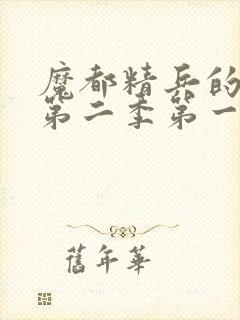 魔都精兵的
第二季第一
舊年華